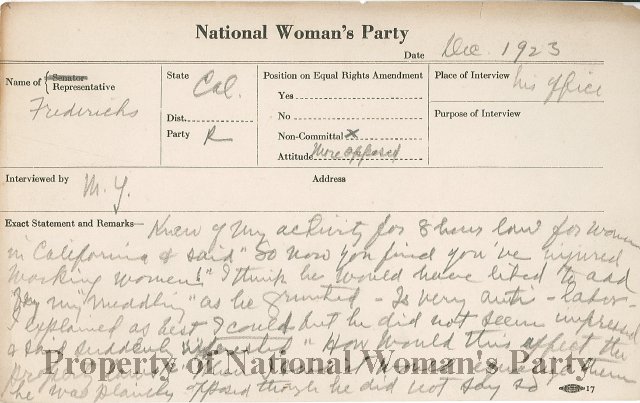 National Woman's Party
Date Dec. 1923
Name of { Senator
Representative
Frederichs
State
Cal.
Dist.
Party R
Position on Equal Rights Amendment
Yes
No
Non-Committal x
Attitude More opposed
Place of Interview
his office
Purpose of Interview
Interviewed by M. Y.
Address
Exact Statement and Remarks— Knew of my activity for 8 hour law for women
in California & said "So now you find you've injured
working women!" I think he would have liked to add
"by my meddling" as he grunted - Is very anti-labor-
I explained as best I could but he did not seem impressed
& said suddenly "How would this affect the
property
he was plainly opposed though he did not say so
Property of National Woman's Party
17